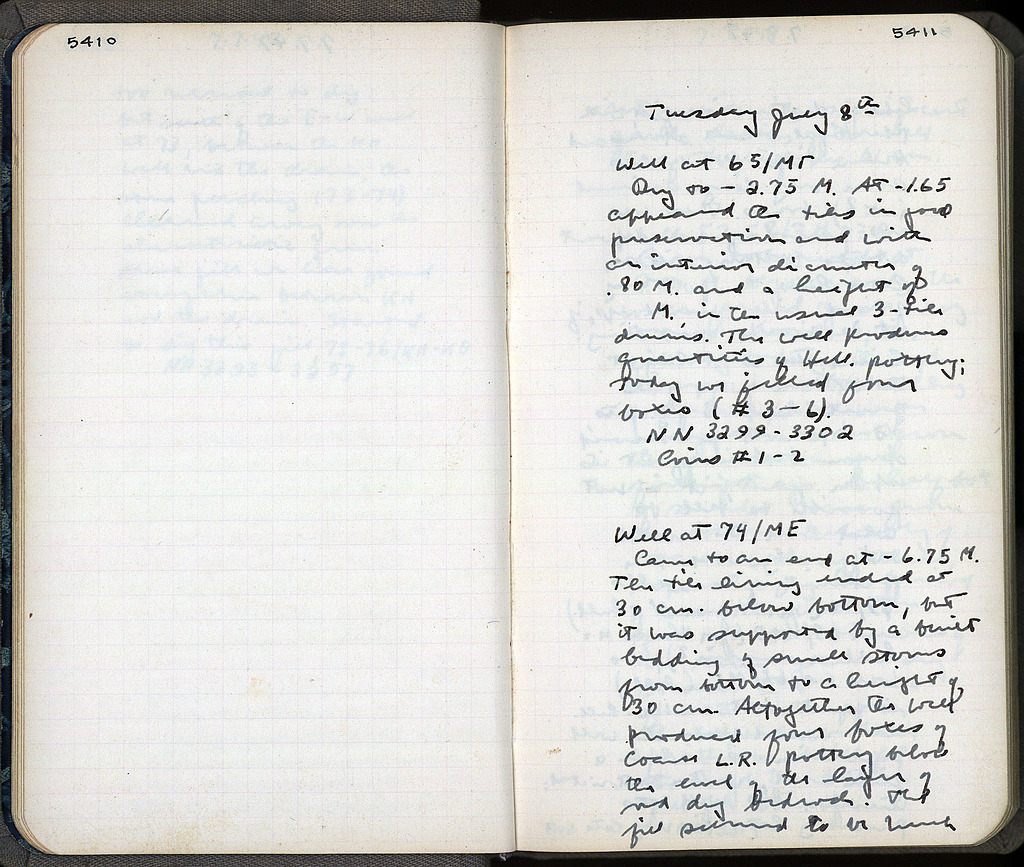 5410
5411
Tuesday July 8th
Well at 65/ΜΓ
Dug to - 2.75 M. At -1.65
appeared the tiles in good
preservation and with
an interior diameter of
.80 M. and a height of
M. in the usual 3-tile
drums. The well produces
quantities of Hell. pottery;
today we filled four
boxes (# 3-6).
NN 3299-3302
Coins #1-2
Well at 74/ΜΕ
Came to an end at - 6.75 M.
The tile lining ended at
30 cm. below bottom, but
it was supported by a built
bedding of small stones
from bottom to a height of
30 cm. Altogether the well
produced four boxes of
coarse L.R. pottery below
the end of the layer of
red dug bedrock. The
fill seemed to be much